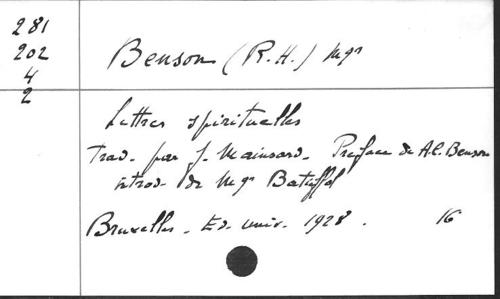 281
202
4
2
Benson (R.H.) Mgr
Lettres spirituelles
Trad. par J. Mainsard. Préface de A.C. Benson
introd. de Mgr Batiffol
Bruxelles. Ed. Univ. 1928. 16